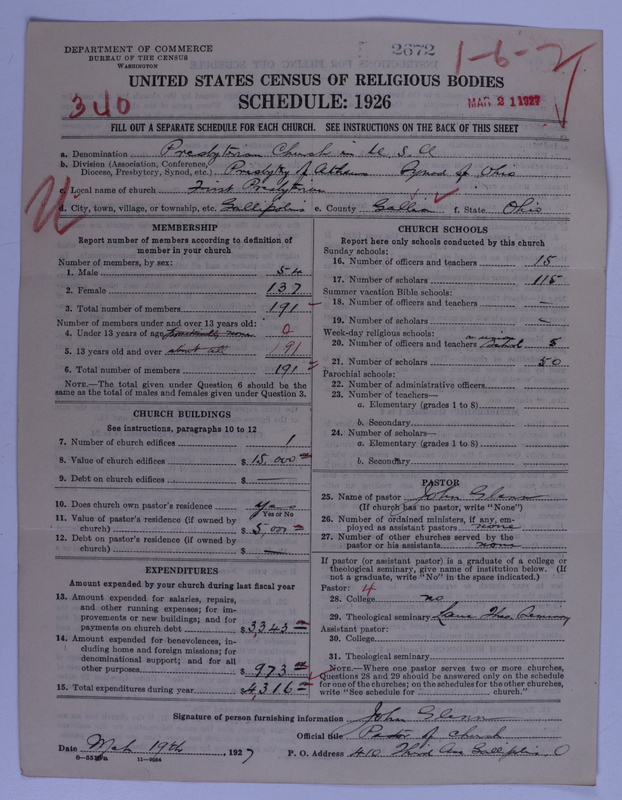 DEPARTMENT OF COMMERCE
BUREAU OF THE CENSUS
WASHINGTON
2672
1-6-2
UNITED STATES CENSUS OF RELIGIOUS BODIES
SCHEDULE: 1926
340
MAR 21 1927
FILL OUT A SEPARATE SCHEDULE FOR EACH CHURCH. SEE INSTRUCTIONS ON THE BACK OF THIS SHEET
a. Denomination Presbyterian Church in U S A
b. Division (Association, Conference, Diocese, Presbytery, Synod, etc.) Presbytry of Athens Synod of Ohio
c. Local name of church First Presbyterian
d. City, town, village, or township, etc. Gallipolis e. County Gallia f. State Ohio
MEMBERSHIP
Report number of members according to definition of
member in your church
Number of members, by sex:
1. Male 54
2. Female 137
3. Total number of members 191
Number of members under and over 13 years old:
4. Under 13 years of age practically none 0
5. 13 years old and over about all 191
6. Total number of members 191
NOTE.—The total given under Question 6 should be the
same as the total of males and females given under Question 3.
CHURCH BUILDINGS
See instructions, paragraphs 10 to 12
7. Number of church edifices 1
8. Value of church edifices $ 15,000
9. Debt on church edifices $ —
10. Does church own pastor's residence yes
Yes or No
11. Value of pastor's residence (if owned by
church) $ 5,000
12. Debt on pastor's residence (if owned by
church) $ —
EXPENDITURES
Amount expended by your church during last fiscal year
13. Amount expended for salaries, repairs,
and other running expenses; for im-
provements or new buildings; and for
payments on church debt $ 3343
14. Amount expended for benevolences, in-
cluding home and foreign missions; for
denominational support; and for all
other purposes $ 973
15. Total expenditures during year $ 4,316
CHURCH SCHOOLS
Report here only schools conducted by this church
Sunday schools:
16. Number of officers and teachers 15
17. Number of scholars 115
Summer vacation Bible schools:
18. Number of officers and teachers —
19. Number of scholars —
Week-day religious schools:
20. Number of officers and teachers a union school 5
21. Number of scholars 50
Parochial schools:
22. Number of administrative officers
23. Number of teachers—
a. Elementary (grades 1 to 8)
b. Secondary
24. Number of scholars—
a. Elementary (grades 1 to 8)
b. Secondary
PASTOR
25. Name of pastor John Glenn
(If church has no pastor, write "None")
26. Number of ordained ministers, if any, em-
ployed as assistant pastors none
27. Number of other churches served by the
pastor or his assistants none
If pastor (or assistant pastor) is a graduate of a college or
theological seminary, give name of institution below. (If
not a graduate, write "No" in the space indicated.)
Pastor: 4
28. College no
29. Theological seminary Lane Theo. Seminary
Assistant pastor:
30. College
31. Theological seminary
NOTE.—Where one pastor serves two or more churches,
Questions 28 and 29 should be answered only on the schedule
for one of the churches; on the schedules for the other churches,
write "See schedule for church."
Signature of person furnishing information John Glenn
Official title Pastor of Church
Date Mch 19th, 1927 P. O. Address 410 Third Ave Gallipolis O
11—9084